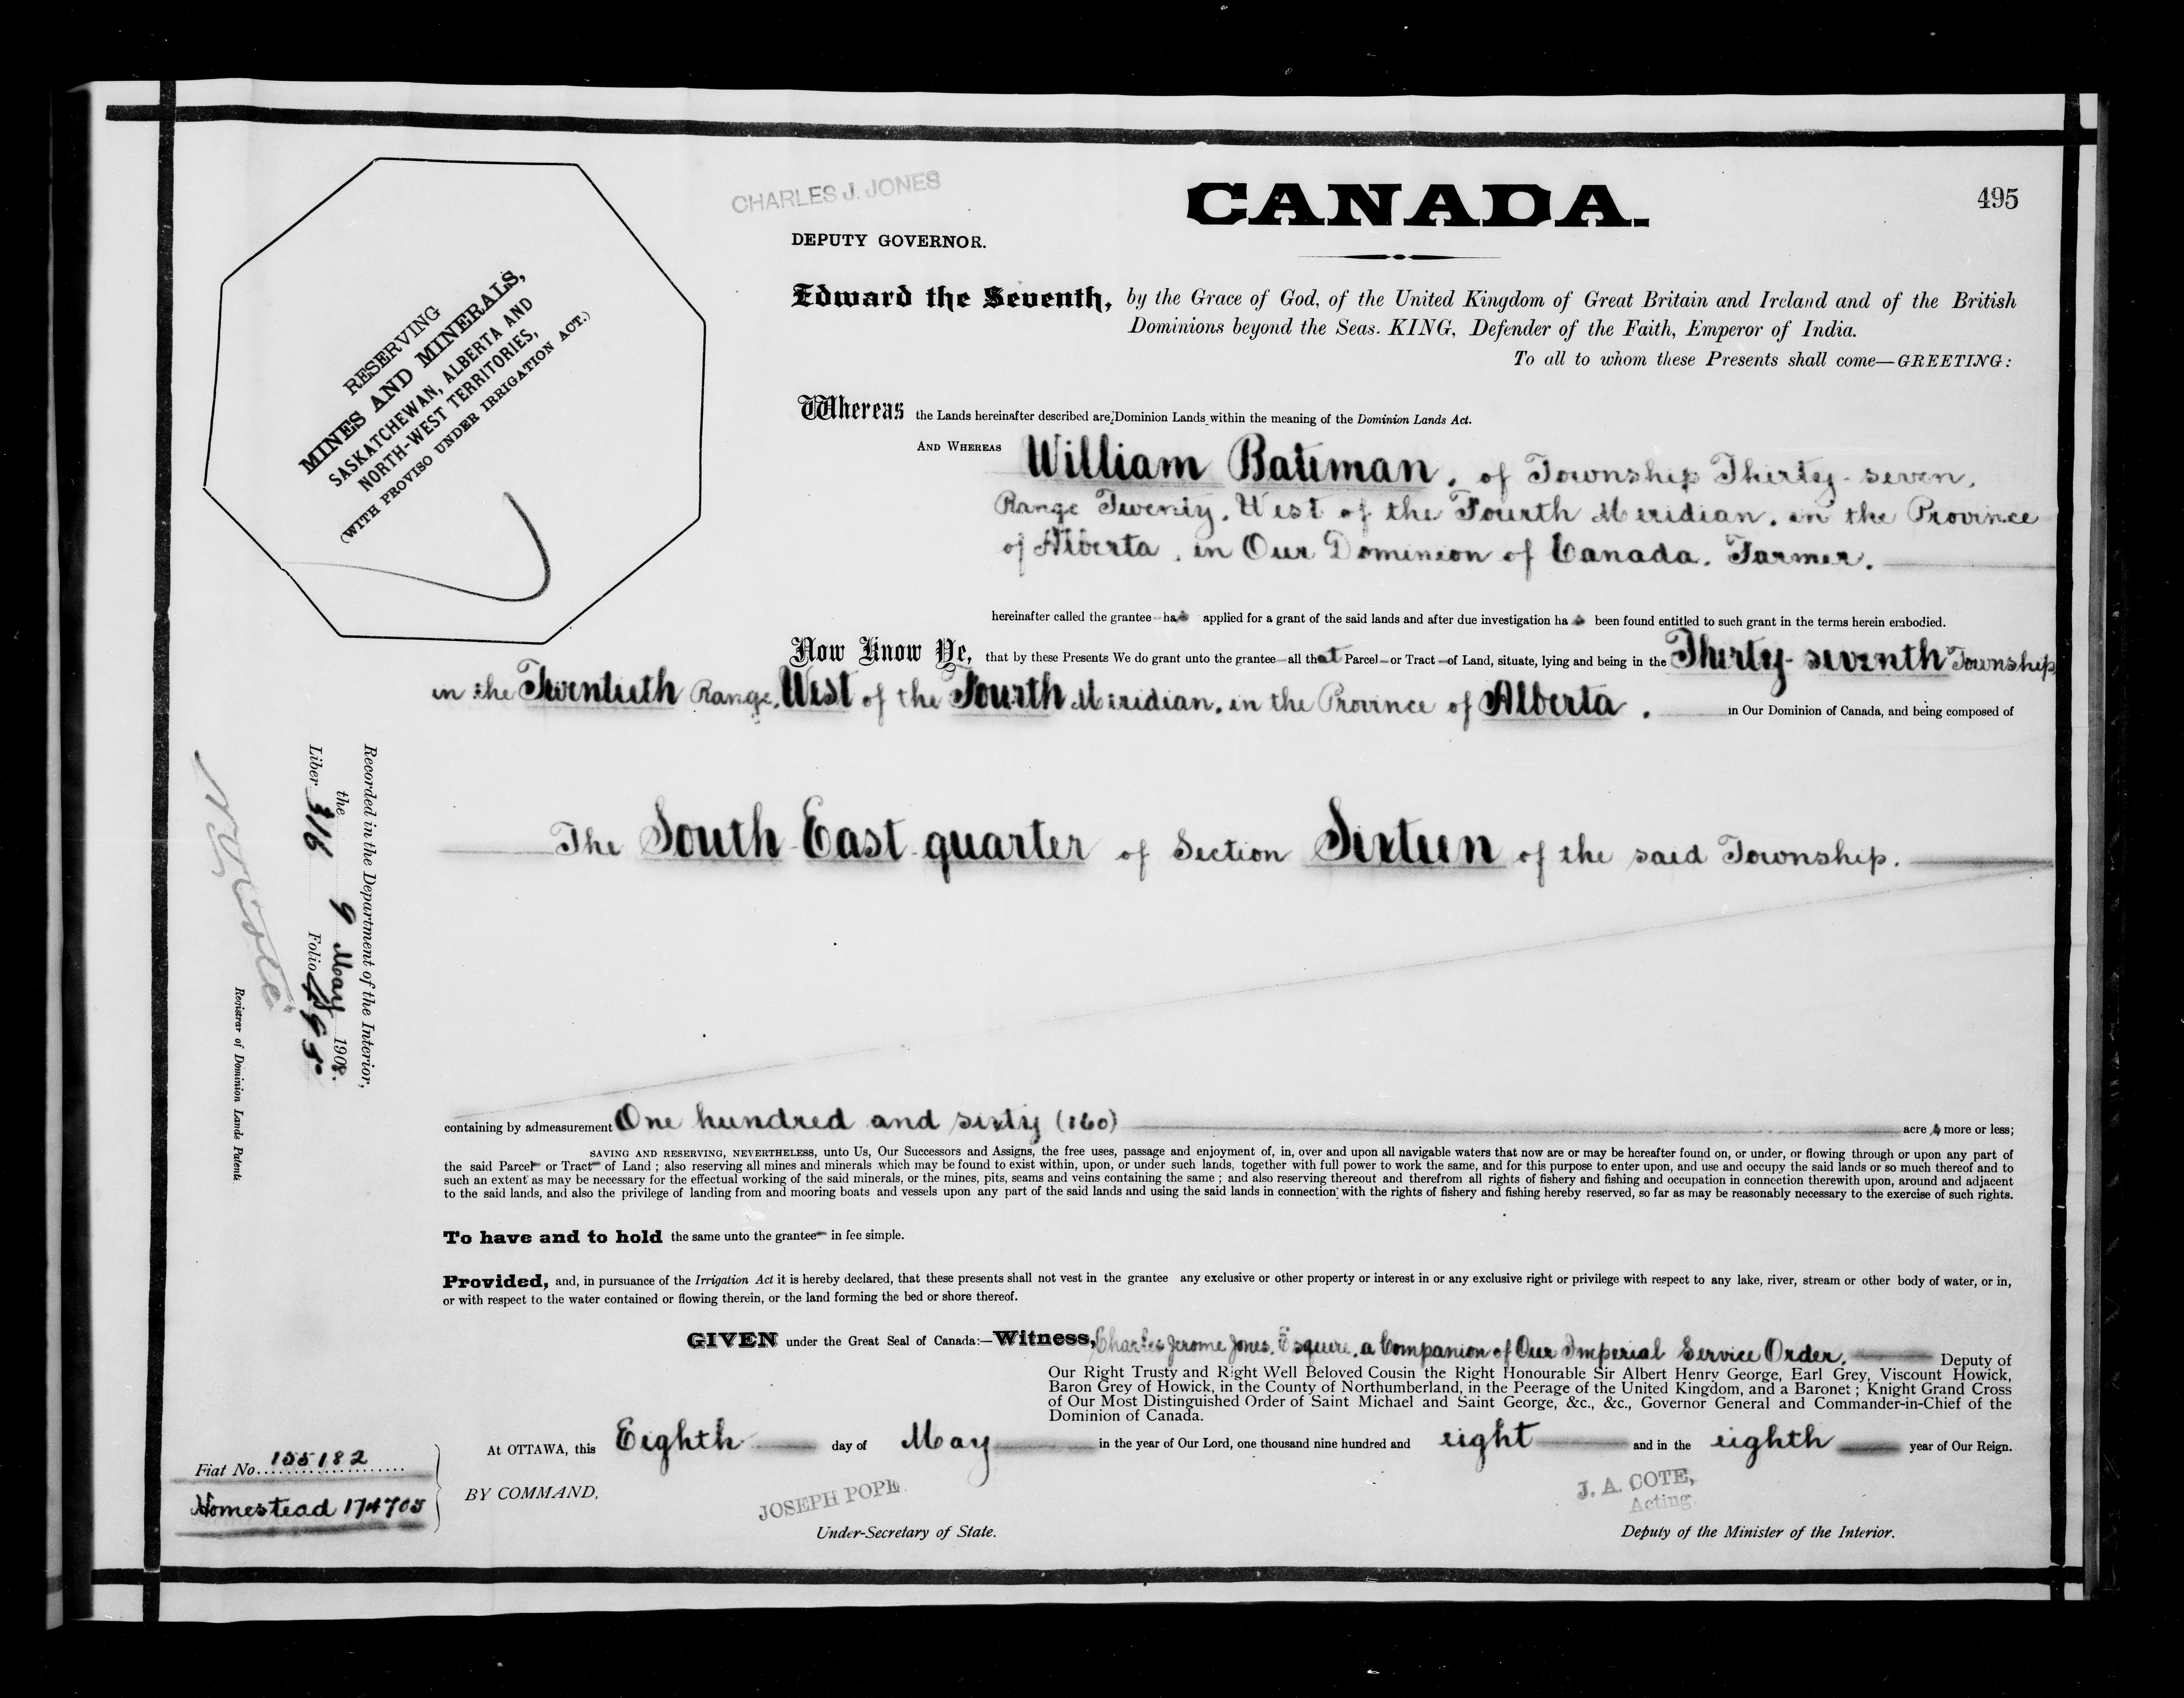 CHARLES J. JONES
CANADA.
495
DEPUTY GOVERNOR.
RESERVING
MINES AND MINERALS,
SASKATCHEWAN, ALBERTA AND
NORTH-WEST TERRITORIES,
(WITH PROVISO UNDER IRRIGATION ACT.)
Edward the Seventh, by the Grace of God, of the United Kingdom of Great Britain and Ireland and of the British
Dominions beyond the Seas. KING, Defender of the Faith, Emperor of India.
To all to whom these Presents shall come—GREETING:
Whereas the Lands hereinafter described are Dominion Lands within the meaning of the Dominion Lands Act.
AND WHEREAS William Bateman, of Township Thirty-seven,
Range Twenty, West of the Fourth Meridian, in the Province
of Alberta, in Our Dominion of Canada, Farmer.
hereinafter called the grantee has applied for a grant of the said lands and after due investigation has been found entitled to such grant in the terms herein embodied.
Now Know Ye, that by these Presents We do grant unto the grantee all that Parcel or Tract of Land, situate, lying and being in the Thirty-seventh Township
in the Twentieth Range, West of the Fourth Meridian, in the Province of Alberta, in Our Dominion of Canada, and being composed of
The South East quarter of Section Sixteen of the said Township.
Recorded in the Department of the Interior,
the 9 May 1908.
Liber 316 Folio 495
Registrar of Dominion Lands Patents
containing by admeasurement One hundred and sixty (160) acres more or less;
SAVING AND RESERVING, NEVERTHELESS, unto Us, Our Successors and Assigns, the free uses, passage and enjoyment of, in, over and upon all navigable waters that now are or may be hereafter found on, or under, or flowing through or upon any part of
the said Parcel or Tract of Land ; also reserving all mines and minerals which may be found to exist within, upon, or under such lands, together with full power to work the same, and for this purpose to enter upon, and use and occupy the said lands or so much thereof and to
such an extent as may be necessary for the effectual working of the said minerals, or the mines, pits, seams and veins containing the same ; and also reserving thereout and therefrom all rights of fishery and fishing and occupation in connection therewith upon, around and adjacent
to the said lands, and also the privilege of landing from and mooring boats and vessels upon any part of the said lands and using the said lands in connection with the rights of fishery and fishing hereby reserved, so far as may be reasonably necessary to the exercise of such rights.
To have and to hold the same unto the grantee in fee simple.
Provided, and, in pursuance of the Irrigation Act it is hereby declared, that these presents shall not vest in the grantee any exclusive or other property or interest in or any exclusive right or privilege with respect to any lake, river, stream or other body of water, or in,
or with respect to the water contained or flowing therein, or the land forming the bed or shore thereof.
GIVEN under the Great Seal of Canada:—Witness, Charles Jerome Jones, Esquire, a Companion of Our Imperial Service Order, Deputy of
Our Right Trusty and Right Well Beloved Cousin the Right Honourable Sir Albert Henry George, Earl Grey, Viscount Howick,
Baron Grey of Howick, in the County of Northumberland, in the Peerage of the United Kingdom, and a Baronet ; Knight Grand Cross
of Our Most Distinguished Order of Saint Michael and Saint George, &c., &c., Governor General and Commander-in-Chief of the
Dominion of Canada.
At OTTAWA, this Eighth day of May in the year of Our Lord, one thousand nine hundred and eight and in the eighth year of Our Reign.
Fiat No. 155182
Homestead 174705
BY COMMAND,
JOSEPH POPE
Under-Secretary of State.
J. A. COTE,
Acting
Deputy of the Minister of the Interior.